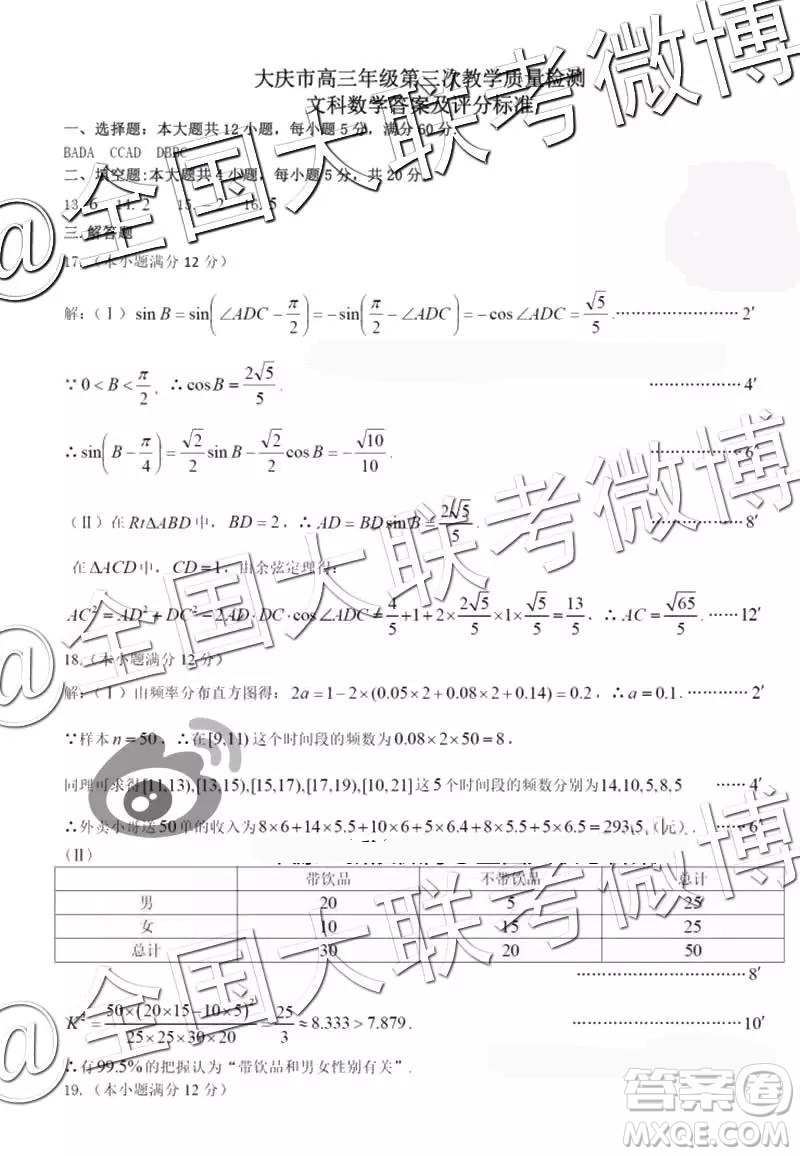 大庆市高三年级第三次教学质量检测
文科数学答案及评分标准
一、选择题:本大题共12小题,每小题5分,满分60分
BADA CCAD DBBC
二、填空题:本大题共4小题,每小题5分,共20分
13. 6 14. 2 15. -2 16. 5
三.解答题
17.(本小题满分12分)
解:(Ⅰ) sin B = sin(∠ADC − π/2) = −sin(π/2 − ∠ADC) = −cos∠ADC = √5/5. …………………… 2′
∵ 0 < B < π/2, ∴ cos B = 2√5/5. ……………… 4′
∴ sin(B − π/4) = √2/2 sin B − √2/2 cos B = −√10/10. ……………… 6′
(Ⅱ)在RtΔABD中, BD = 2, ∴ AD = BD sin B = 2√5/5. ……………… 8′
在ΔACD中, CD = 1, 由余弦定理得:
AC² = AD² + DC² − 2AD·DC·cos∠ADC = 4/5 + 1 + 2 × 2√5/5 × 1 × √5/5 = 13/5, ∴ AC = √65/5. …… 12′
18.(本小题满分12分)
解:(Ⅰ)由频率分布直方图得: 2a = 1 − 2 × (0.05 × 2 + 0.08 × 2 + 0.14) = 0.2, ∴ a = 0.1. ………… 2′
∵样本 n = 50, ∴在[9,11)这个时间段的频数为 0.08 × 2 × 50 = 8,
同理可求得[11,13),[13,15),[15,17),[17,19),[10,21]这5个时间段的频数分别为14,10,5,8,5 …… 4′
∴外卖小哥送50单的收入为 8×6+14×5.5+10×6+5×6.4+8×5.5+5×6.5=293.5(元). …… 6′
(Ⅱ)
带饮品 不带饮品 总计
男 20 5 25
女 10 15 25
总计 30 20 50
……………… 8′
K² = 50×(20×15−10×5)²/25×25×30×20 = 25/3 ≈ 8.333 > 7.879. …………………… 10′
∴有99.5%的把握认为“带饮品和男女性别有关”.
19.(本小题满分12分)
@全国大联考微博
@全国大联考微博
答案卷
MXQE.COM